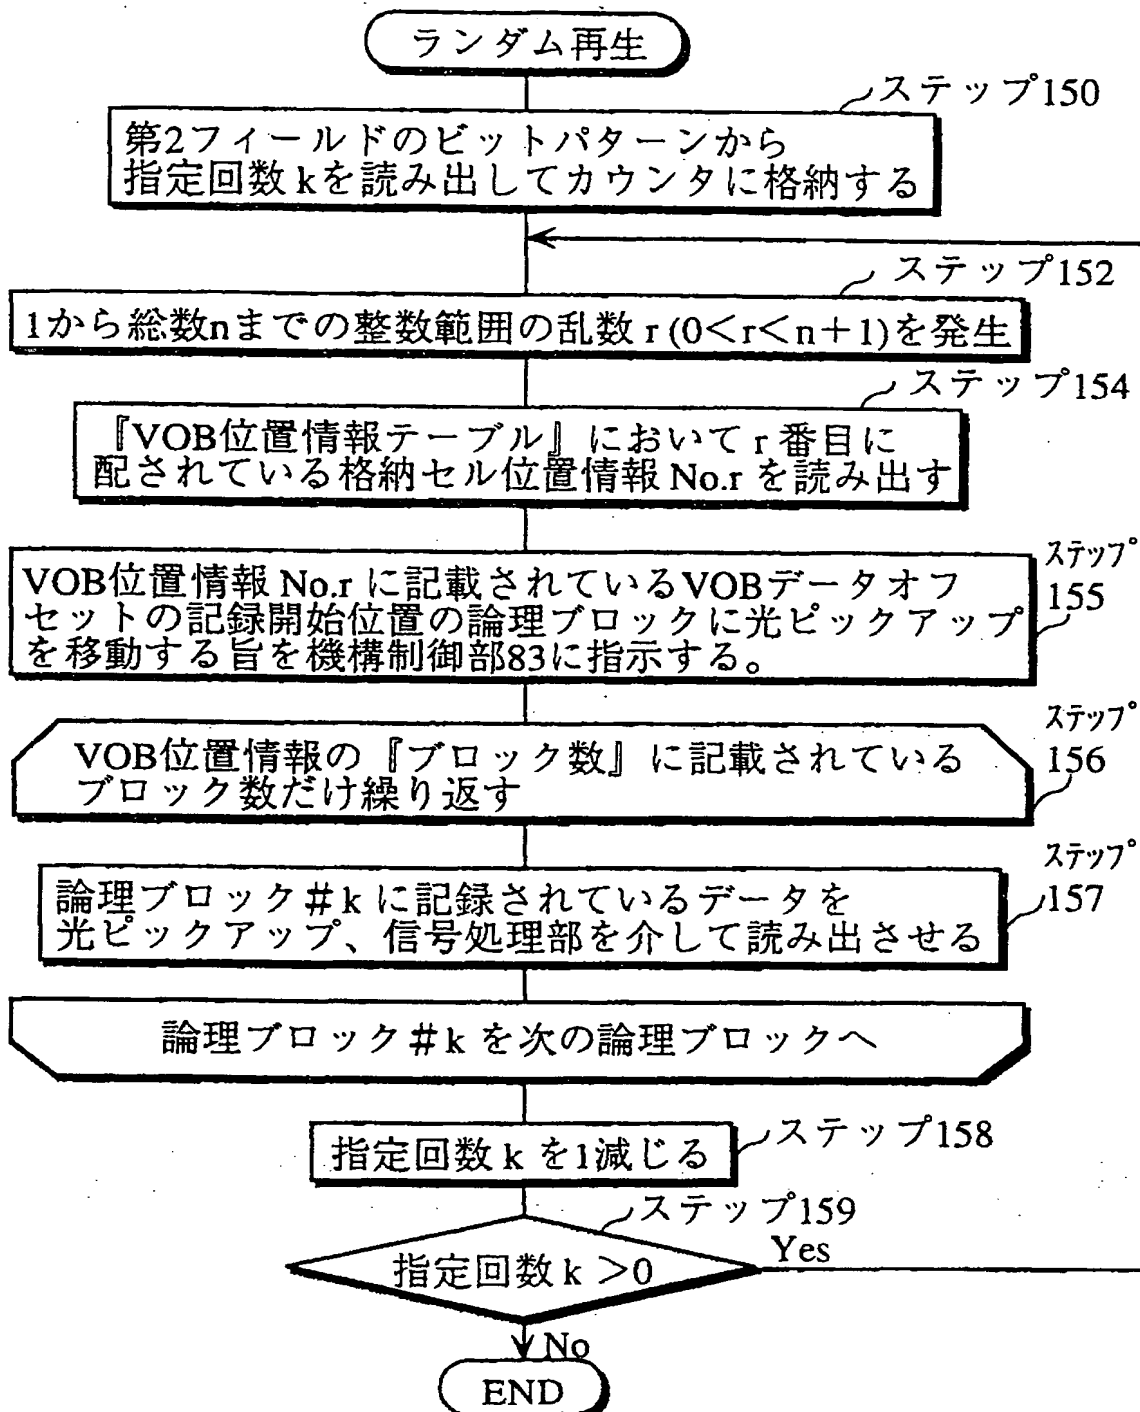 ランダム再生
ステップ150
第2フィールドのビットパターンから
指定回数kを読み出してカウンタに格納する
ステップ152
1から総数nまでの整数範囲の乱数 r (0<r<n+1)を発生
ステップ154
『VOB位置情報テーブル』において r 番目に
配されている格納セル位置情報 No.r を読み出す
ステップ
155
VOB位置情報 No.r に記載されているVOBデータオフ
セットの記録開始位置の論理ブロックに光ピックアップ
を移動する旨を機構制御部83に指示する。
ステップ
156
VOB位置情報の『ブロック数』に記載されている
ブロック数だけ繰り返す
ステップ
157
論理ブロック#k に記録されているデータを
光ピックアップ、信号処理部を介して読み出させる
論理ブロック#k を次の論理ブロックへ
ステップ158
指定回数 k を1減じる
ステップ159
指定回数 k >0
Yes
No
END